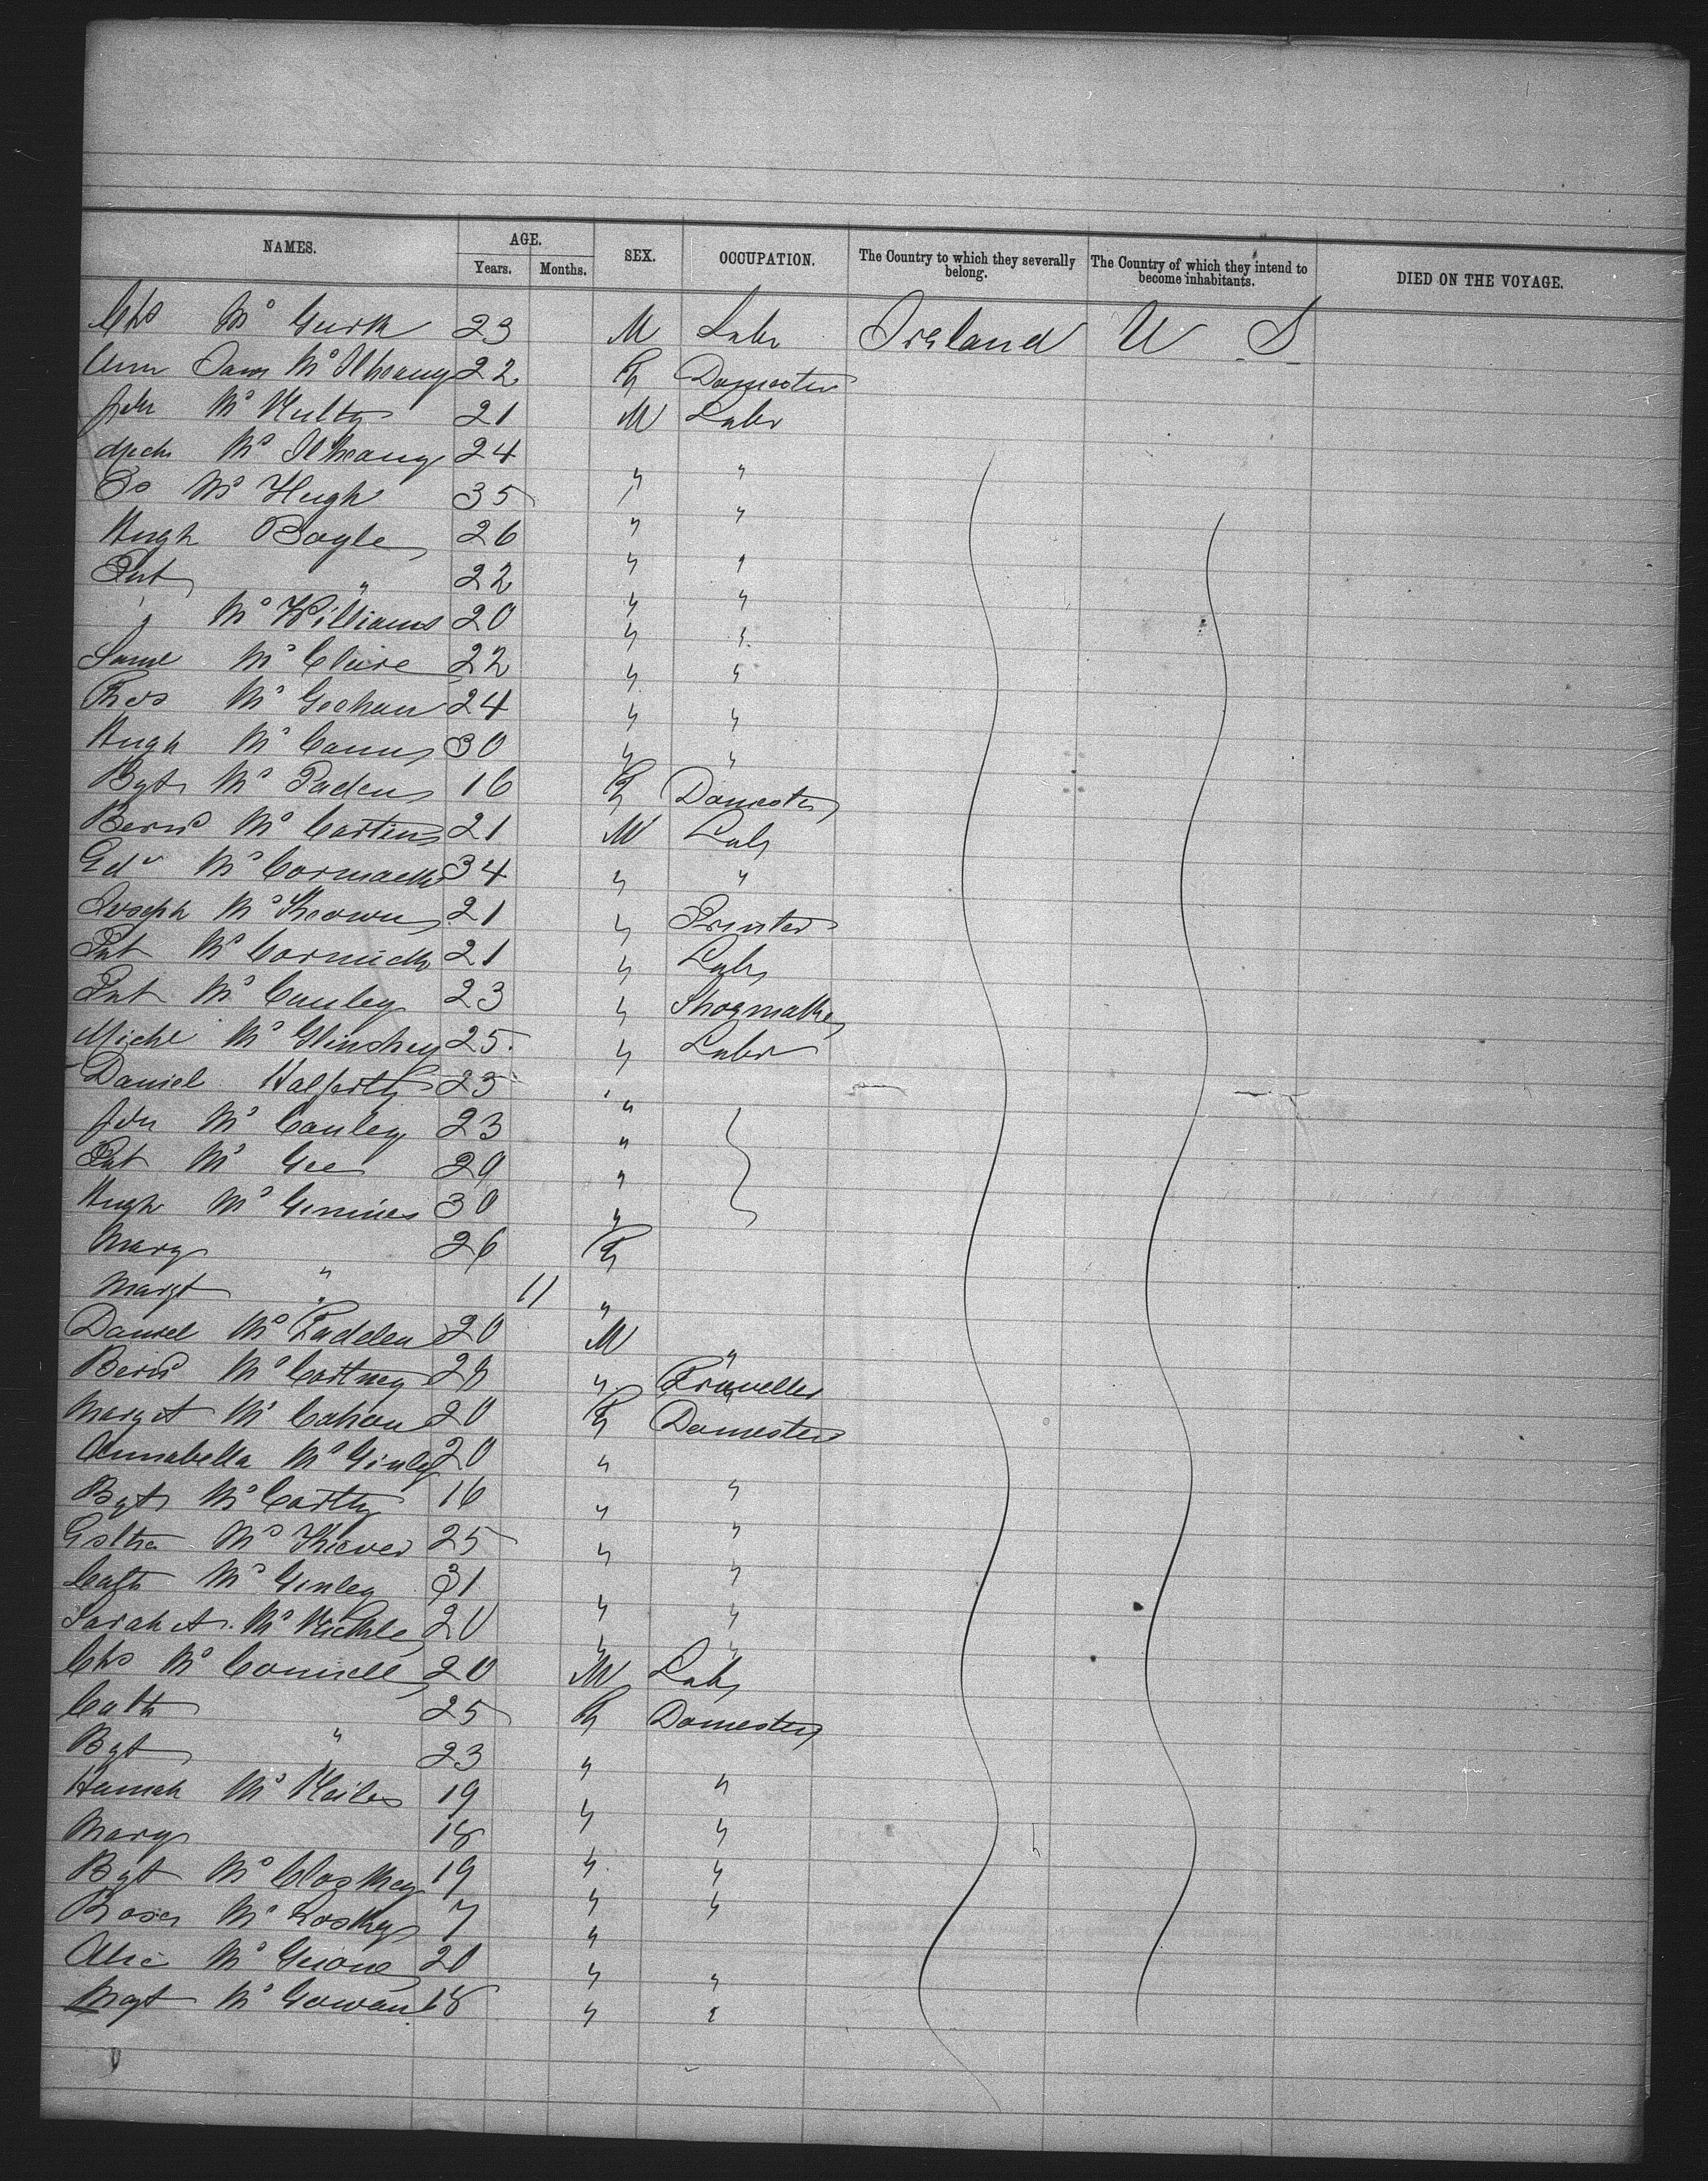 NAMES. AGE. Years. Months. SEX. OCCUPATION. The Country to which they severally belong. The Country of which they intend to become inhabitants. DIED ON THE VOYAGE.
Chs Mc Gurk 23 M Labr Ireland U S
Ann Jane Mc Ilheany 22 F Domestic
John Mc Nulty 21 M Labr
Mich Mc Ilheany 24 " "
Do Mc Hugh 35 " "
Hugh Boyle 26 " "
Pat " 22 " "
" Mc Williams 20 " "
Saml Mc Clure 22 " "
Thos Mc Geehan 24 " "
Hugh Mc Cann 30 " "
Bgt Mc Faden 16 F Domestic
Bernd Mc Cartin 21 M Labr
Edw Mc Cormack 34 " "
Joseph Mc Keown 21 " Printer
Pat Mc Cormick 21 " Labr
Pat Mc Cauley 23 " Shoemaker
Michl Mc Glinchey 25 " Labr
Daniel Halferty 23 "
John Mc Cauley 23 "
Pat Mc Gee 29 "
Hugh Mc Ginnies 30 "
Mary " 26 F
Margt " 11 "
Daniel Mc Fadden 20 M "
Bernd Mc Cartney 28 " Traveller
Margt Mc Cahan 20 F Domestic
Annabella Mc Ginley 20 " "
Bgt Mc Carthy 16 " "
Esther Mc Kiever 25 " "
Cath Mc Ginley 31 " "
Sarah A. Mc 20 " "
Chs Mc Connell 20 M Labr
Cath " 25 F Domestic
Bgt " 23 " "
Hannah Mc 19 " "
Mary 18 " "
Bgt Mc Closkey 19 " "
Rose Mc Loskey 7 "
Alice Mc 20 " "
Mgt Mc Gowan 18 " "